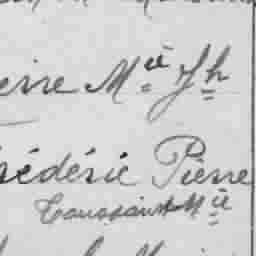 erre Mie Jh
édéric Pierre
Toussaint Mie